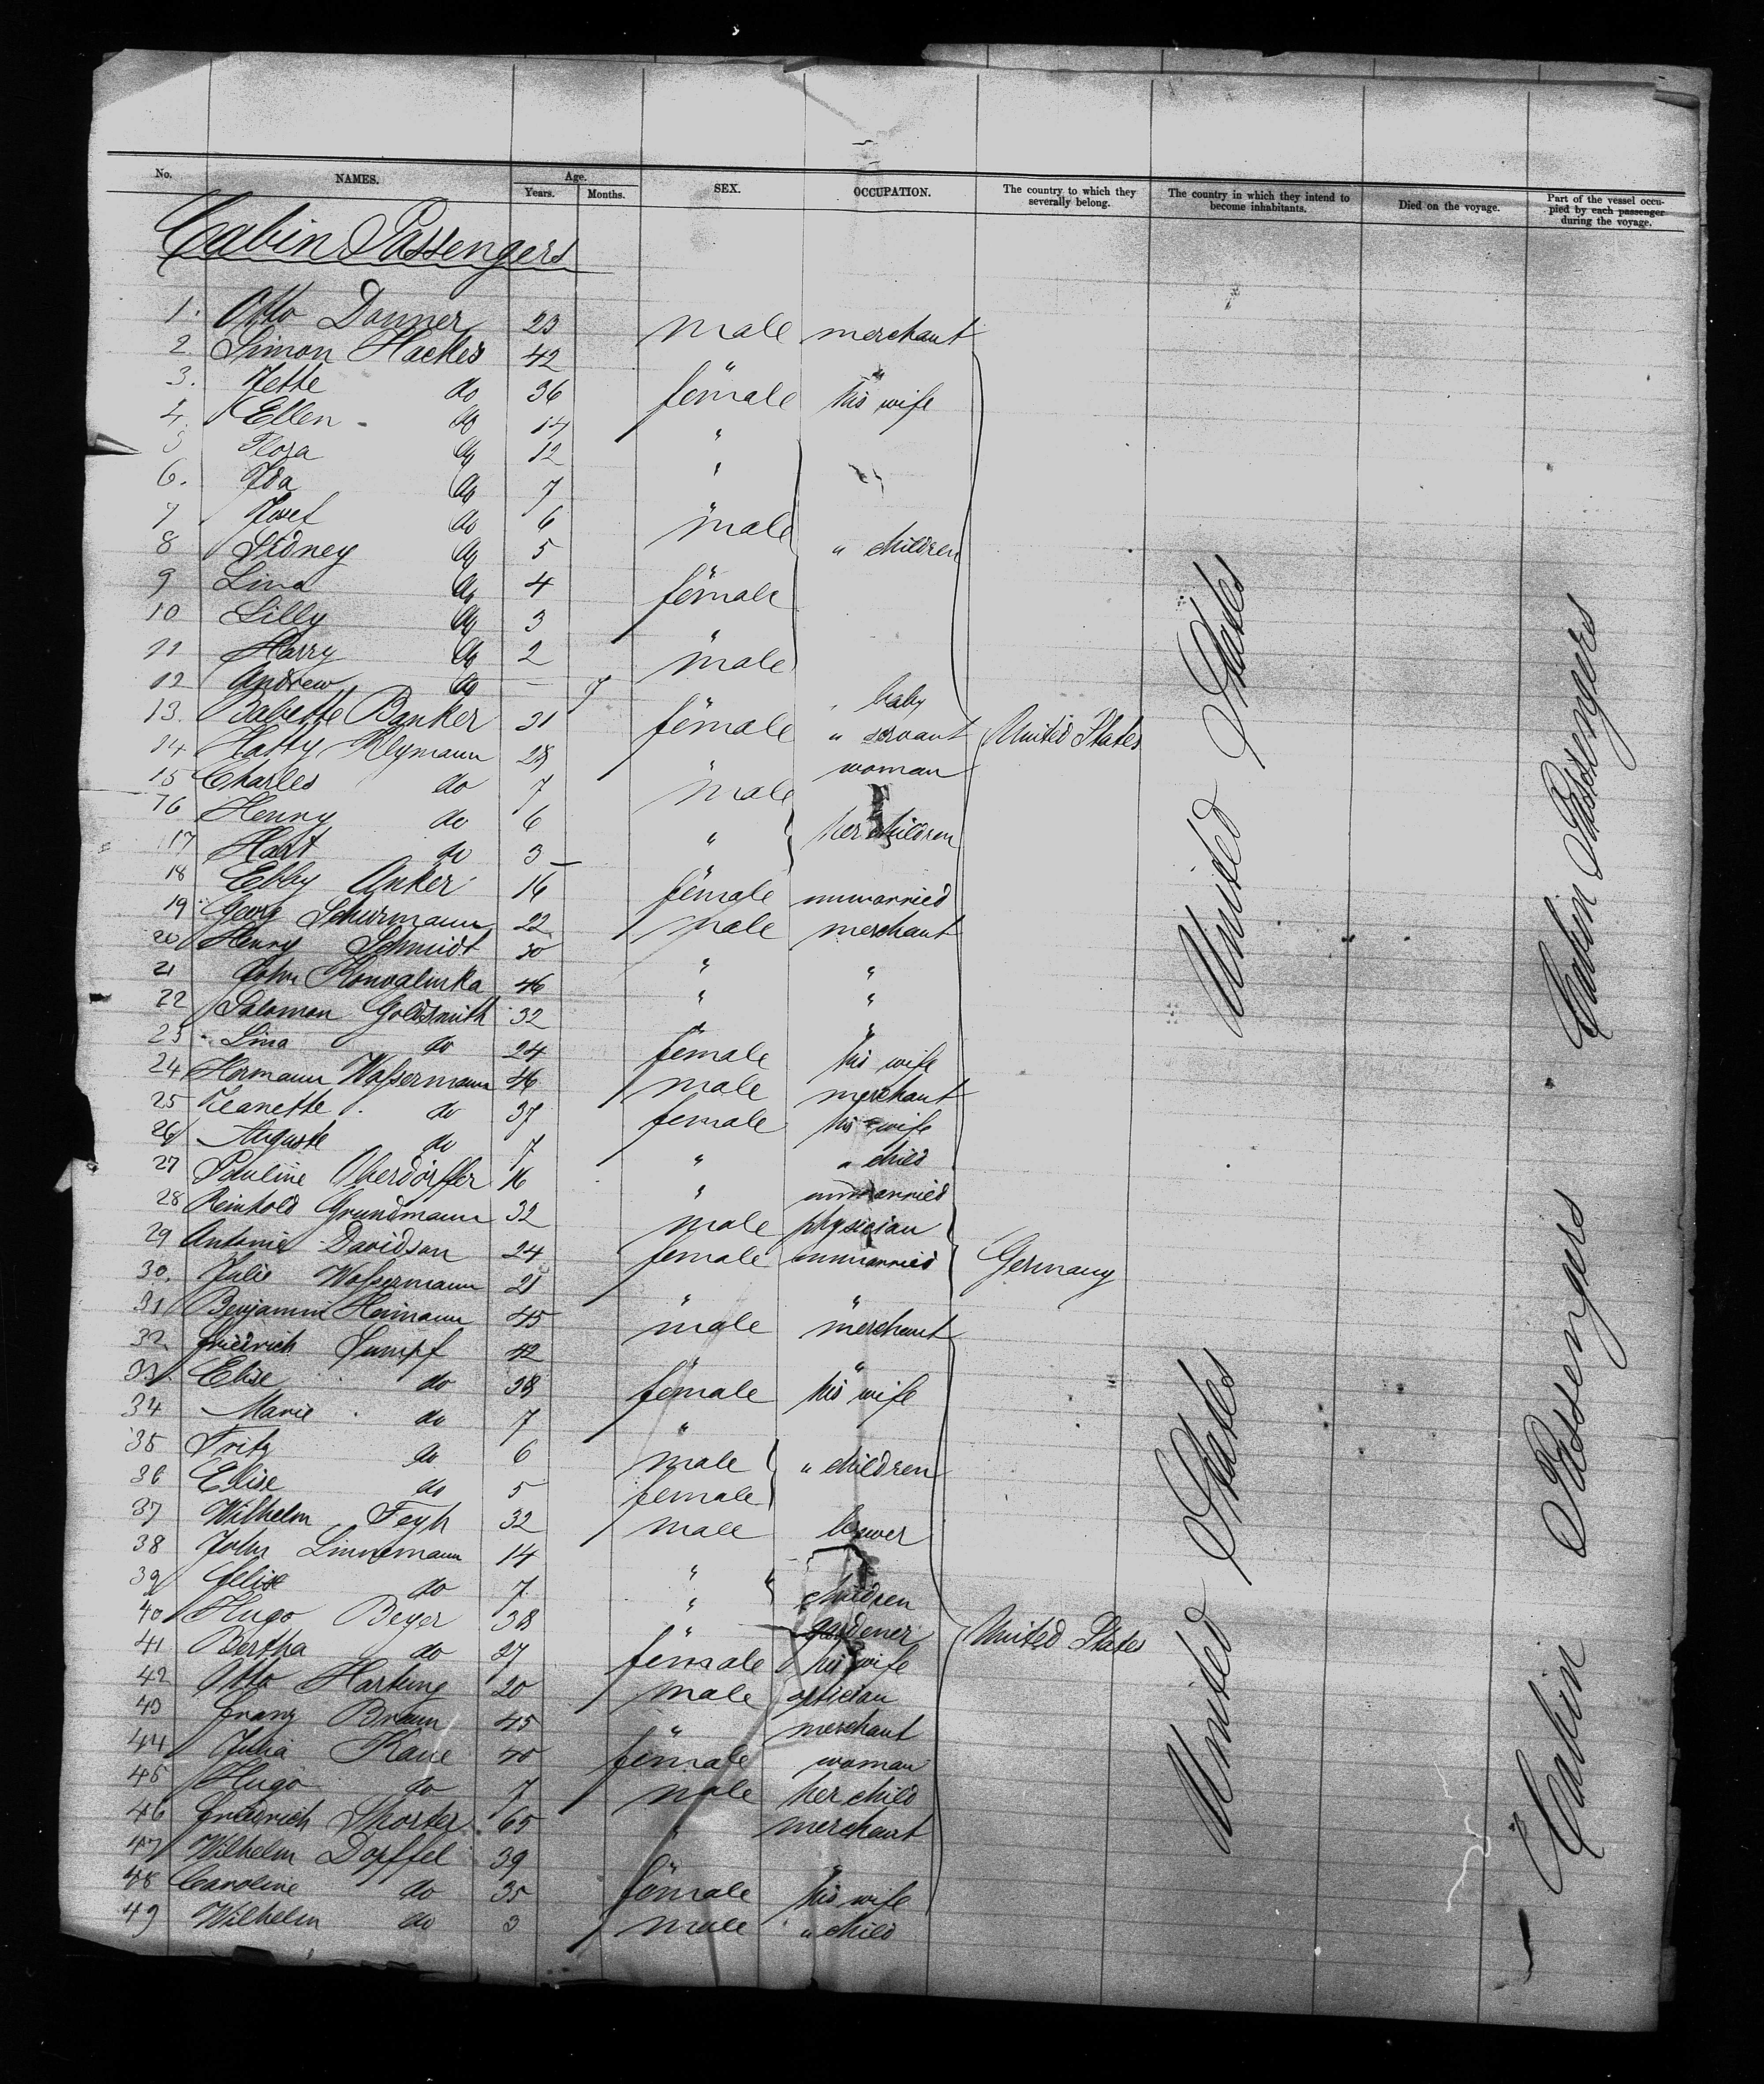 No. NAMES. Age. Years. Months. SEX. OCCUPATION. The country to which they severally belong. The country in which they intend to become inhabitants. Died on the voyage. Part of the vessel occupied by each passenger during the voyage.
Cabin Passengers
1. Otto Donner 23 male merchant
2. Simon Hackes 42 " "
3. Jette do 36 female his wife
4. Ellen do 14 "
5 Flora do 12 "
6. Ida do 7 "
7 Josef do 6 male
8 Sidney do 5 " " children
9 Lina do 4 female
10 Lilly do 3 "
11 Harry do 2 male
12 Andrew do – 7 " " baby
13. Babette Banker 31 female " servant United States
14 Hatty Kleymann 28 " woman
15 Charles do 7 male
16 Henny do 6 " her children
17 Hart do 3 "
18 Ebby Anker 16 female unmarried
19 Georg Schurmann 22 male merchant
20 Henny Schmidt 30 " "
21 John 46 " "
22 Salomon Goldsmith 32 " "
23 Lina do 24 female his wife
24 Hermann Wassermann 46 male merchant
25 Jeanette do 37 female his wife
26 Auguste do 7 " " child
27 Pauline Oberdorffer 16 " unmarried
28 Reinhold Grundmann 32 male physician
29 Antonie Davidson 24 female unmarried Germany
30. Julie Wassermann 21 " "
31 Benjamin Heimann 45 male merchant
32. Friedrich Sumpf 42 " "
33. Elise do 38 female his wife
34 Marie do 7 "
35 Fritz do 6 male " children
36 Elise do 5 female
37 Wilhelm Feyh 32 male brewer
38 John Linnemann 14 "
39 do 7 " children
40 Hugo Beyer 38 " gardener United States
41 Bertha do 27 female his wife
42 Otto Hartung 20 male optician
43 Franz Braun 45 " merchant
44 Julia Kane 40 female woman
45 Hugo do 7 male her child
46 Friedrich Shorter 65 " merchant
47 Wilhelm Dopffel 39 " "
48 Caroline do 35 female his wife
49 Wilhelm do 3 male " child
United States
United States
Cabin Passengers
Cabin Passengers